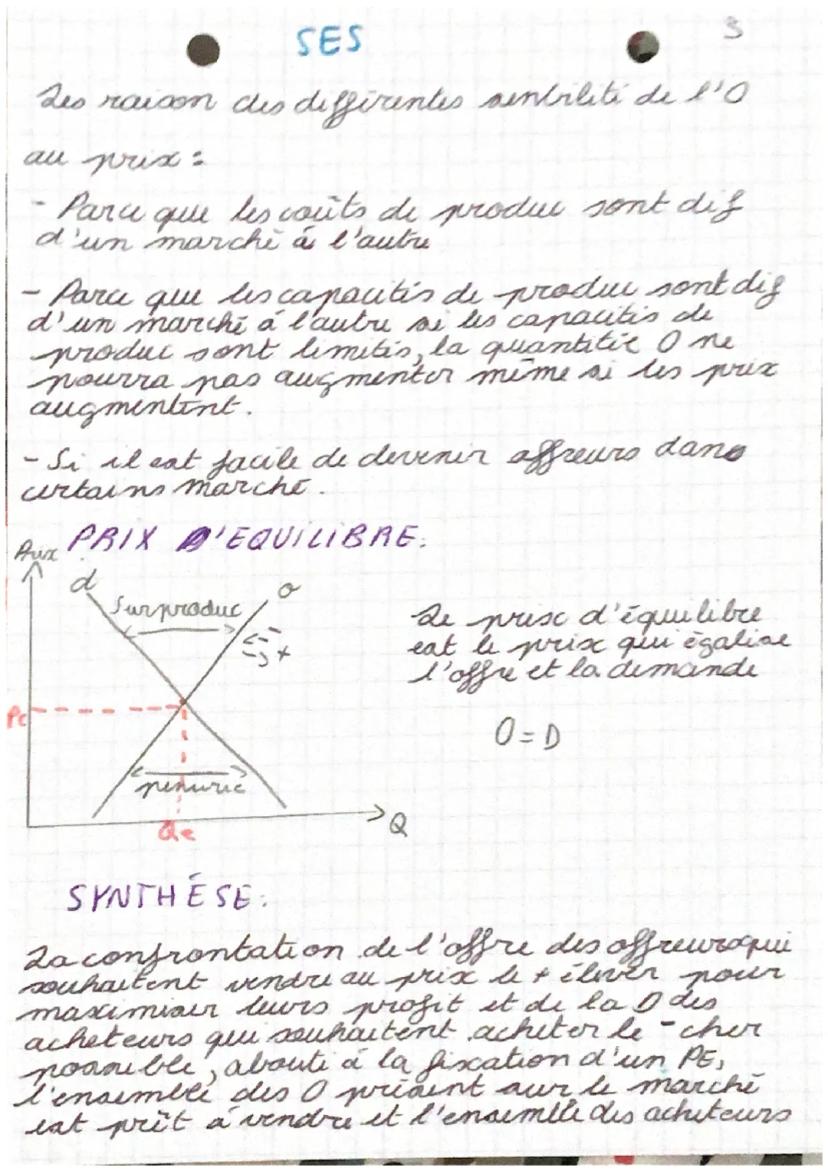 SES
3
Les raison des différentes sensibilité de l'O
au prix :
- Parce que les coûts de produc sont dif
d'un marché à l'autre
- Parce que les capacités de produc sont dif
d'un marché à l'autre si les capacités de
produc sont limités, la quantité O ne
pourra pas augmenter même si les prix
augmentent.
- Si il est facile de devenir offreurs dans
certains marché.
PRIX D'EQUILIBRE.
Prix
d
Surproduc
o
-
+
Le prix d'équilibre
est le prix qui égalise
l'offre et la demande
Pe
O = D
pénurie
Q
Qe
SYNTHÉSE.
La confrontation de l'offre des offreurs qui
souhaitent vendre au prix le + élever pour
maximiser leurs profit et de la D des
acheteurs qui souhaitent acheter le - cher
possible, abouti à la fixation d'un PE,
l'ensemble des O présent sur le marché
est prêt à vendre et l'ensemble des acheteurs